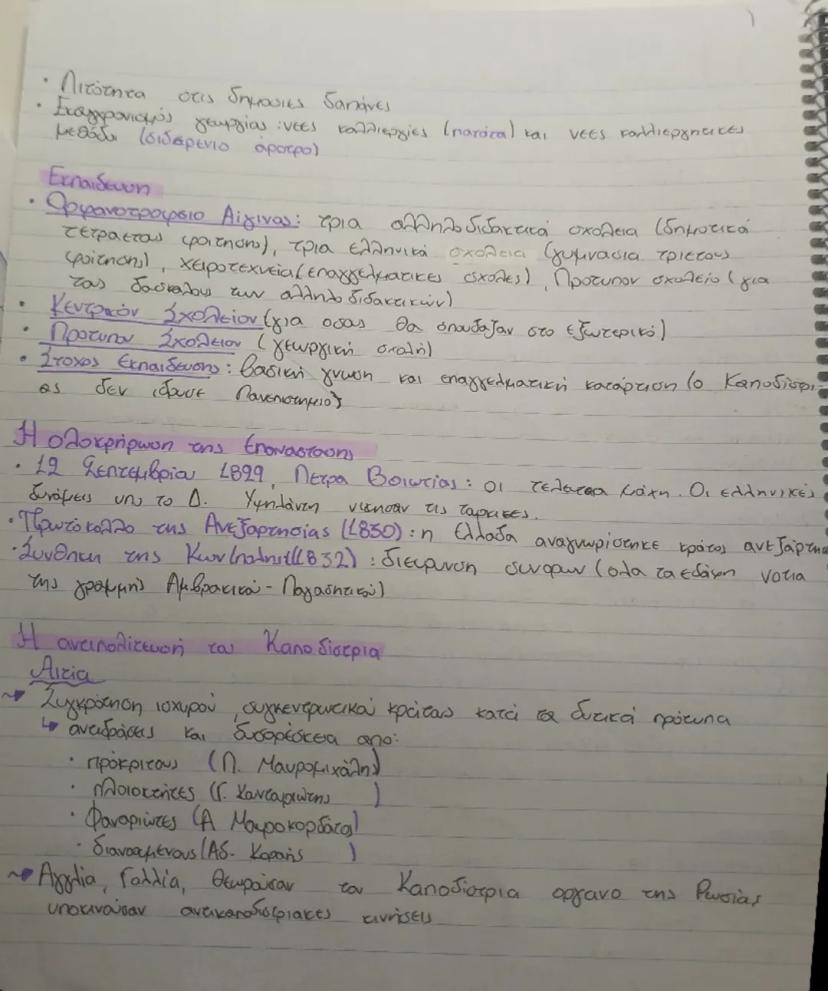 • Λιτότητα στις δημοσιες δαπάνες
• Εκσυγχρονισμός γεωργίας: νεες καλλιεργίες (πατάτα) και νεες καλλιεργητικες
μεθόδοι (σιδερενιο αροτρο)
Εκπαιδευση
• Ορφανοτροφειο Αίγινας: τρια αλληλοδιδακτικά σχολεια (δημοτικά
τετραετους φοιτησης), τρια ελληνικά σχολεια (γυμνασια τριετους
φοιτησης), χειροτεχνεία (επαγγελματικες σχολες), Προτυπον σχολείο (για
τους δασκαλους των αλληλοδιδακτικών)
• Κεντρικόν Σχολείον (για οσους θα σπουδαζαν στο εξωτερικό)
• Προτυπον Σχολειον (γεωργική σχολή)
• Στοχος Εκπαιδευσης: βασική γνωση και επαγγελματική καταρτιση (ο Καποδίστρι-
ας δεν ιδρυσε Πανεπιστημιο)
Η ολοκρήρωση της Επαναστασης
• 12 Σεπτεμβρίου 1829, Πετρα Βοιωτιας: οι τελευταια μάχη. Οι ελληνικές
δυνάμεις υπο το Δ. Υψηλάντη νικησαν τις ταρακες.
• Πρωτόκολλο της Ανεξαρτησίας (1830): η Ελλαδα αναγνωρίστηκε κράτος ανεξάρτη
• Συνθηκη της Κων/πολης (1832): διευρυνση συνορων (ολα τα εδάφη νοτια
της γραμμής Αμβρακικού - Παγασητικού)
Η αντιπολίτευσή του Καποδίστρια
Αιτία
Συγκρότηση ισχυρού, συγκεντρωτικού κράτους κατά τα δυτικά πρότυπα
αντιδράσεις και δυσαρέσκεια απο:
• πρόκριτους (Π. Μαυρομιχάλη)
• πλοιοκτήτες (Γ. Κουντουριώτης )
• Φαναριώτες (Α Μαυροκορδάτος)
• διανοούμενους (Αδ. Κοραής )
Αγγλία, Γαλλία, θεωρούσαν τον Καποδίστρια οργανο της Ρωσίας
υποκινούσαν αντικαποδιστριακες κινήσεις